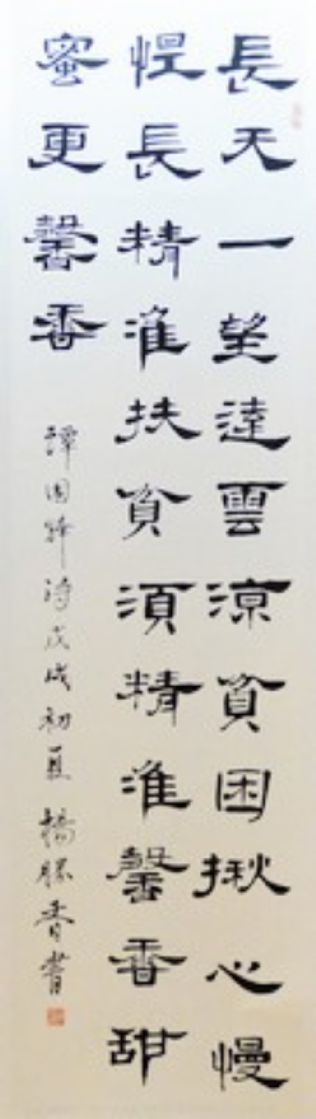 長天一望達雲涼貧困揪心慢
長精准扶貧須精准馨香甜
蜜更馨香
譚国詩戊戌初夏 楊勝香書